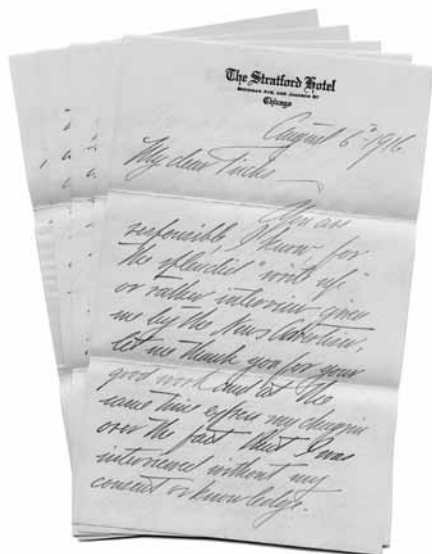 The Stratford Hotel
Michigan Ave. and Jackson Bd
Chicago
August 6th 1916
My dear
You are
responsible, I know, for
the splendid "write up"
or rather interview given
me by the News Advertiser,
let me thank you for your
good work and at the
same time express my chagrin
over the fact that I was
interviewed without my
consent or knowledge.